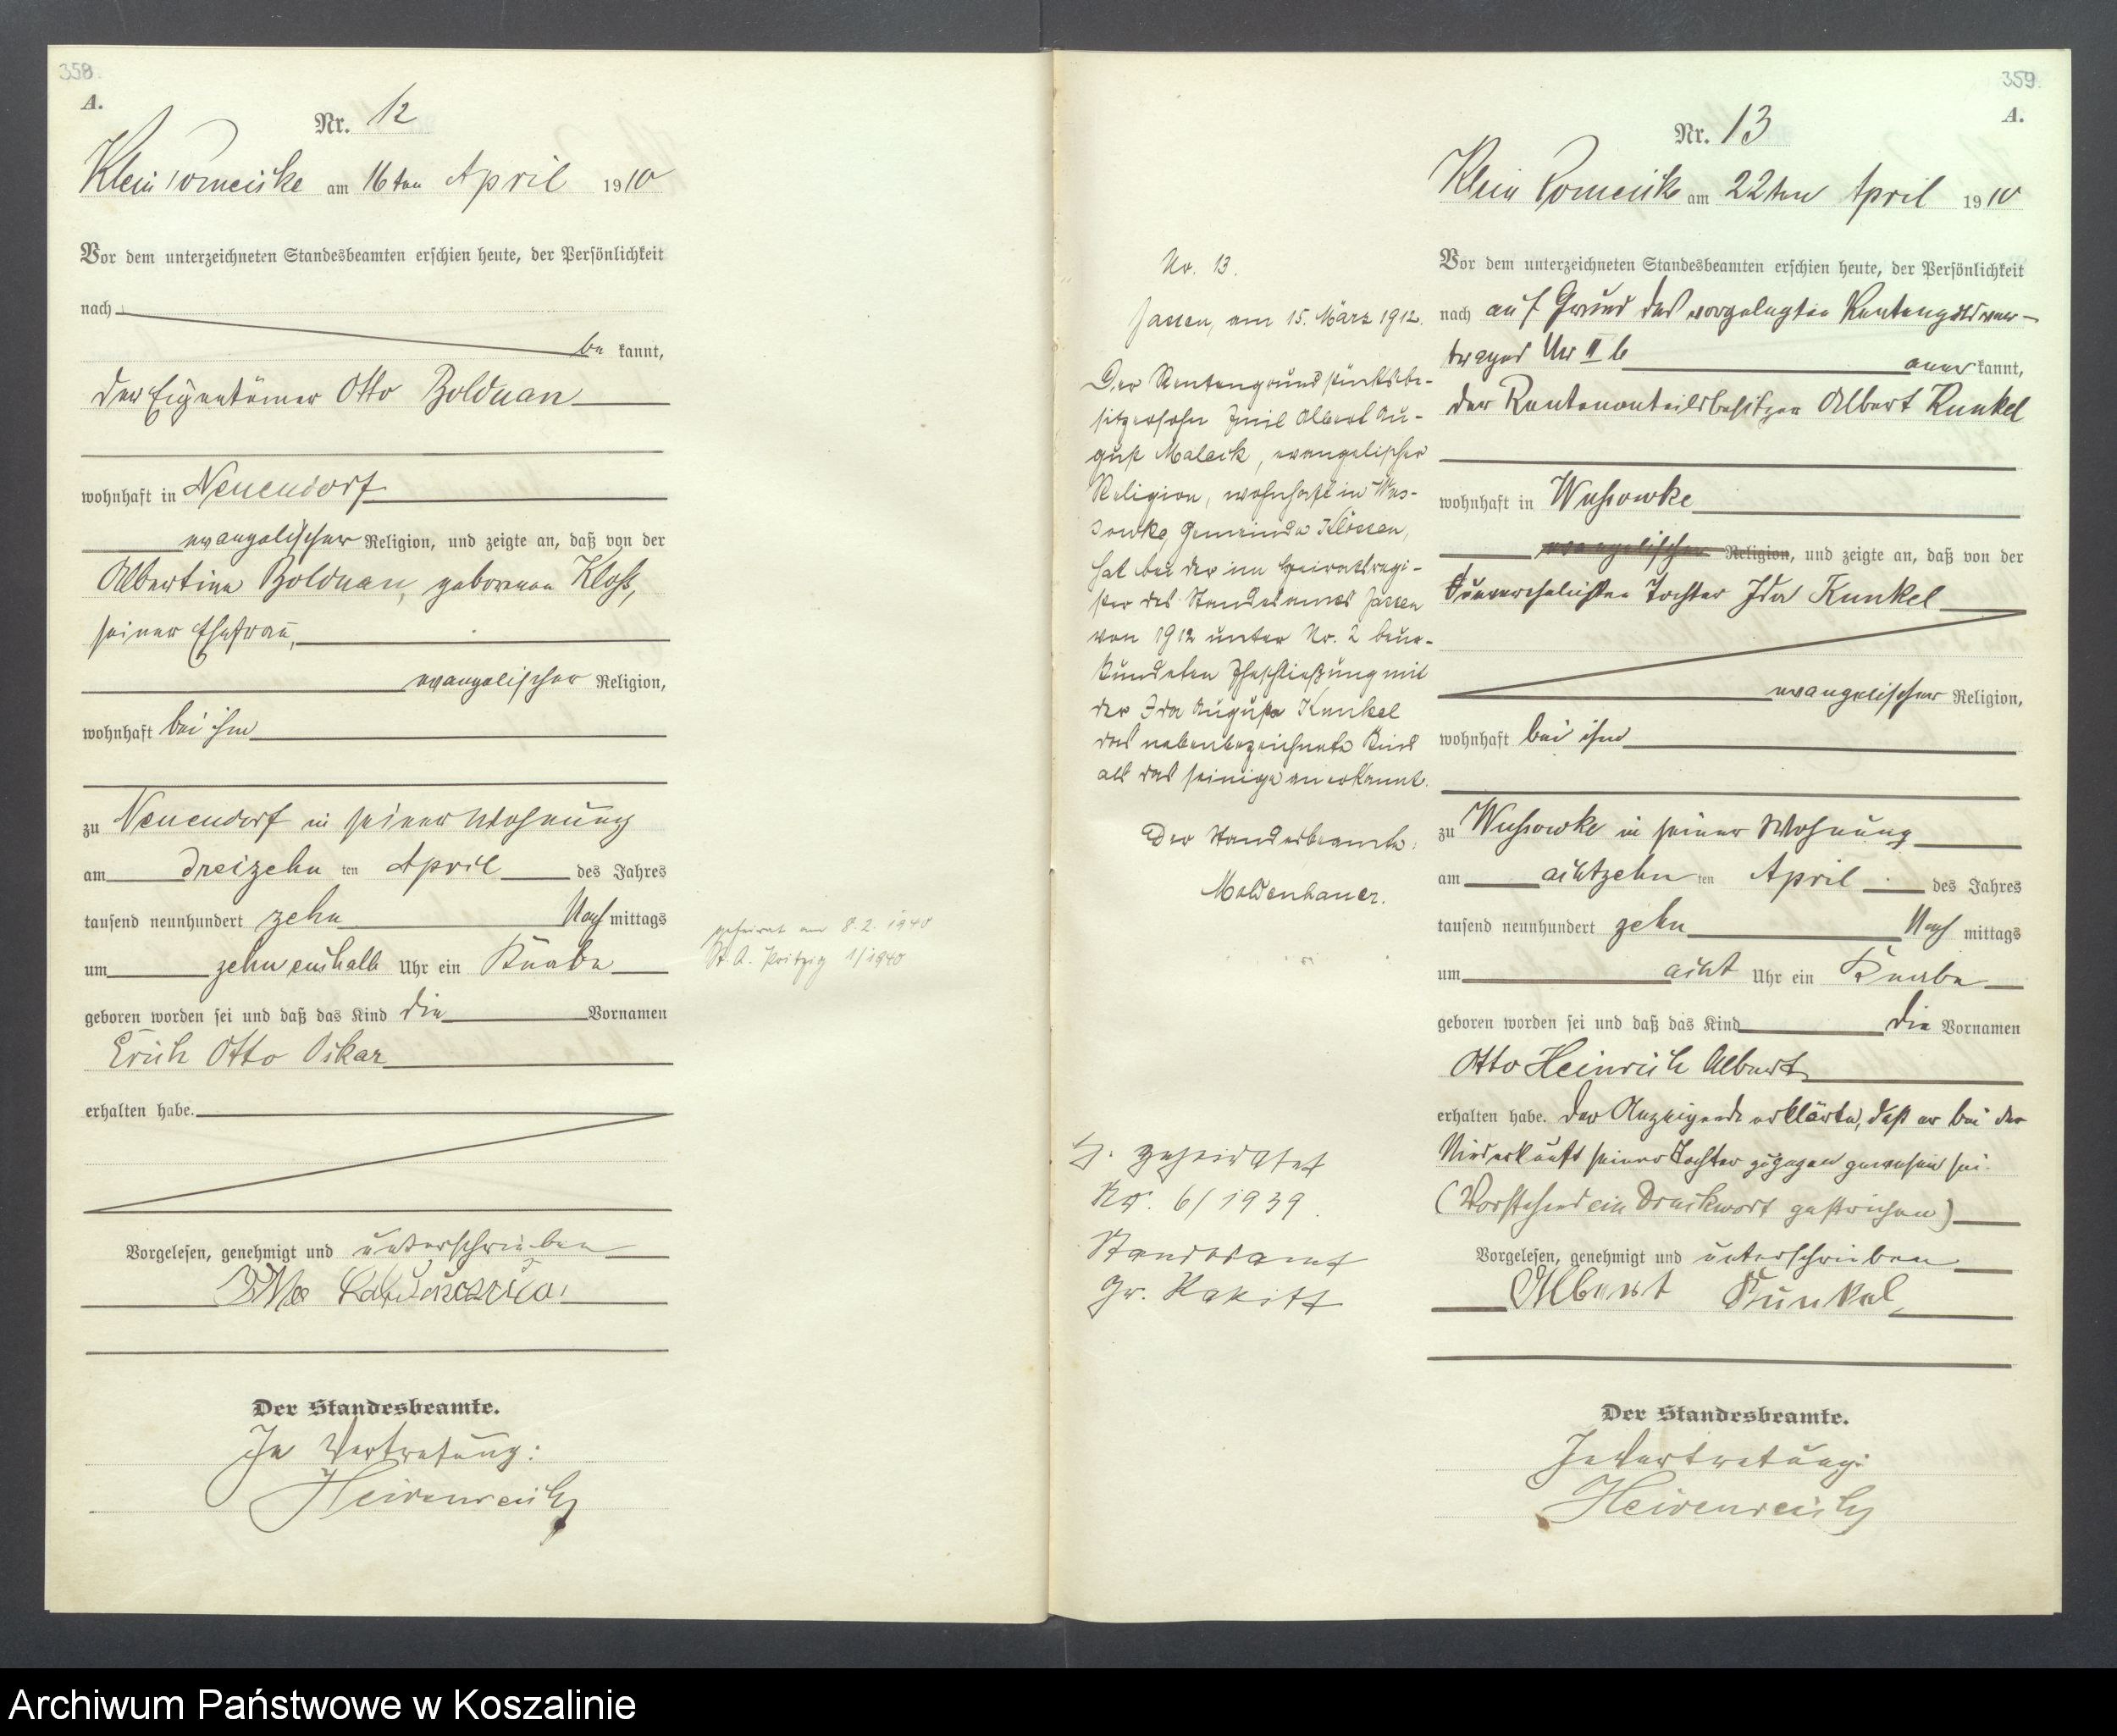 358.
A.
Nr. 12
Klein Pomeiske am 16ten April 1910
Vor dem unterzeichneten Standesbeamten erschien heute, der Persönlichkeit
nach
be kannt,
der Eigentümer Otto Bolduan
wohnhaft in Neuendorf
evangelischer Religion, und zeigte an, daß von der
Albertine Bolduan, geborenen Kloß,
seiner Ehefrau,
evangelischer Religion,
wohnhaft bei ihm
zu Neuendorf in seiner Wohnung
am dreizehn ten April des Jahres
tausend neunhundert zehn Nach mittags
um zehn einhalb Uhr ein Knabe
geboren worden sei und daß das Kind die Vornamen
Erich Otto Oskar
erhalten habe.
Vorgelesen, genehmigt und unterschrieben
Der Standesbeamte.
In Vertretung:
Heidenreich
geheirat am 8.2.1940
St. A. Pritzig 1/1940
359.
A.
Nr. 13
Klein Pomeiske am 22ten April 1910
Vor dem unterzeichneten Standesbeamten erschien heute, der Persönlichkeit
nach auf Grund des vorgelegten Rentengutsver-
trages Nr II b aner kannt,
der Rentenanteilsbesitzer Albert Kunkel
wohnhaft in Wussowke
evangelischer Religion, und zeigte an, daß von der
unverehelichten Tochter Ida Kunkel
evangelischer Religion,
wohnhaft bei ihm
zu Wussowke in seiner Wohnung
am achtzehn ten April des Jahres
tausend neunhundert zehn Nach mittags
um acht Uhr ein Knabe
geboren worden sei und daß das Kind die Vornamen
Otto Heinrich Albert
erhalten habe. Der Anzeigende erklärte, daß er bei der
Niederkunft seiner Tochter zugegen gewesen sei.
(Vorstehend ein Druckwort gestrichen)
Vorgelesen, genehmigt und unterschrieben
Albert Kunkel
Der Standesbeamte.
In Vertretung:
Heidenreich
No. 13.
Jassen, am 15. März 1912.
Der Rentengrundstücksbe-
sitzersohn Emil Albert Au-
gust Malack, evangelischer
Religion, wohnhaft in Wus-
sowke, Gemeinde Klössen,
hat bei der im Heiratsregi-
ster des Standesamts Jassen
von 1912 unter Nr. 2 beur-
kundeten Eheschließung mit
der Ida Auguste Kunkel
das nebenbezeichnete Kind
als das seinige anerkannt.
Der Standesbeamte:
Moldenhauer.
geheiratet
Nr. 6/1939.
Standesamt
Gr. Rakitt
Archiwum Państwowe w Koszalinie